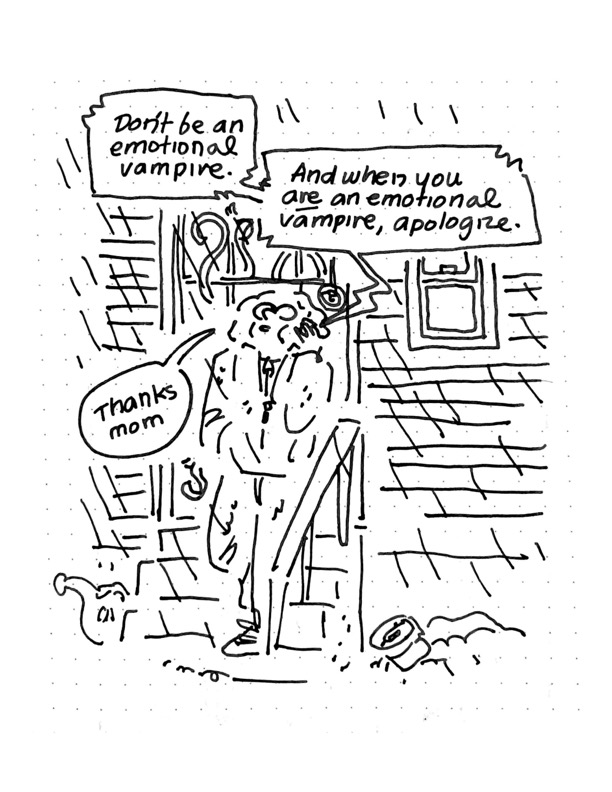 Don't be an
emotional
vampire.
And when you
are an emotional
vampire, apologize.
Thanks
mom